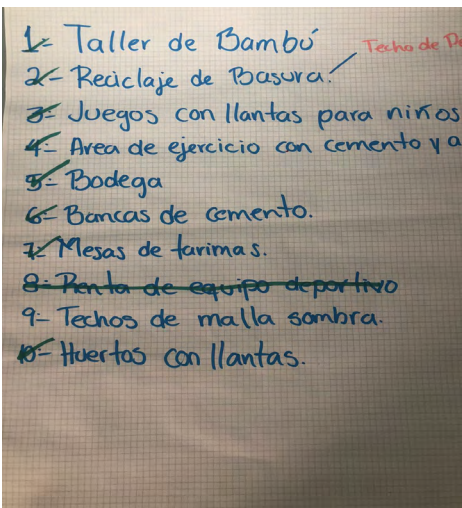 1- Taller de Bambú
Techo de
2- Reciclaje de Basura.
3- Juegos con llantas para niños
4- Area de ejercicio con cemento y
5- Bodega
6- Bancas de cemento.
7- Mesas de tarimas.
8- Renta de equipo deportivo
9- Techos de malla sombra.
10- Huertos con llantas.